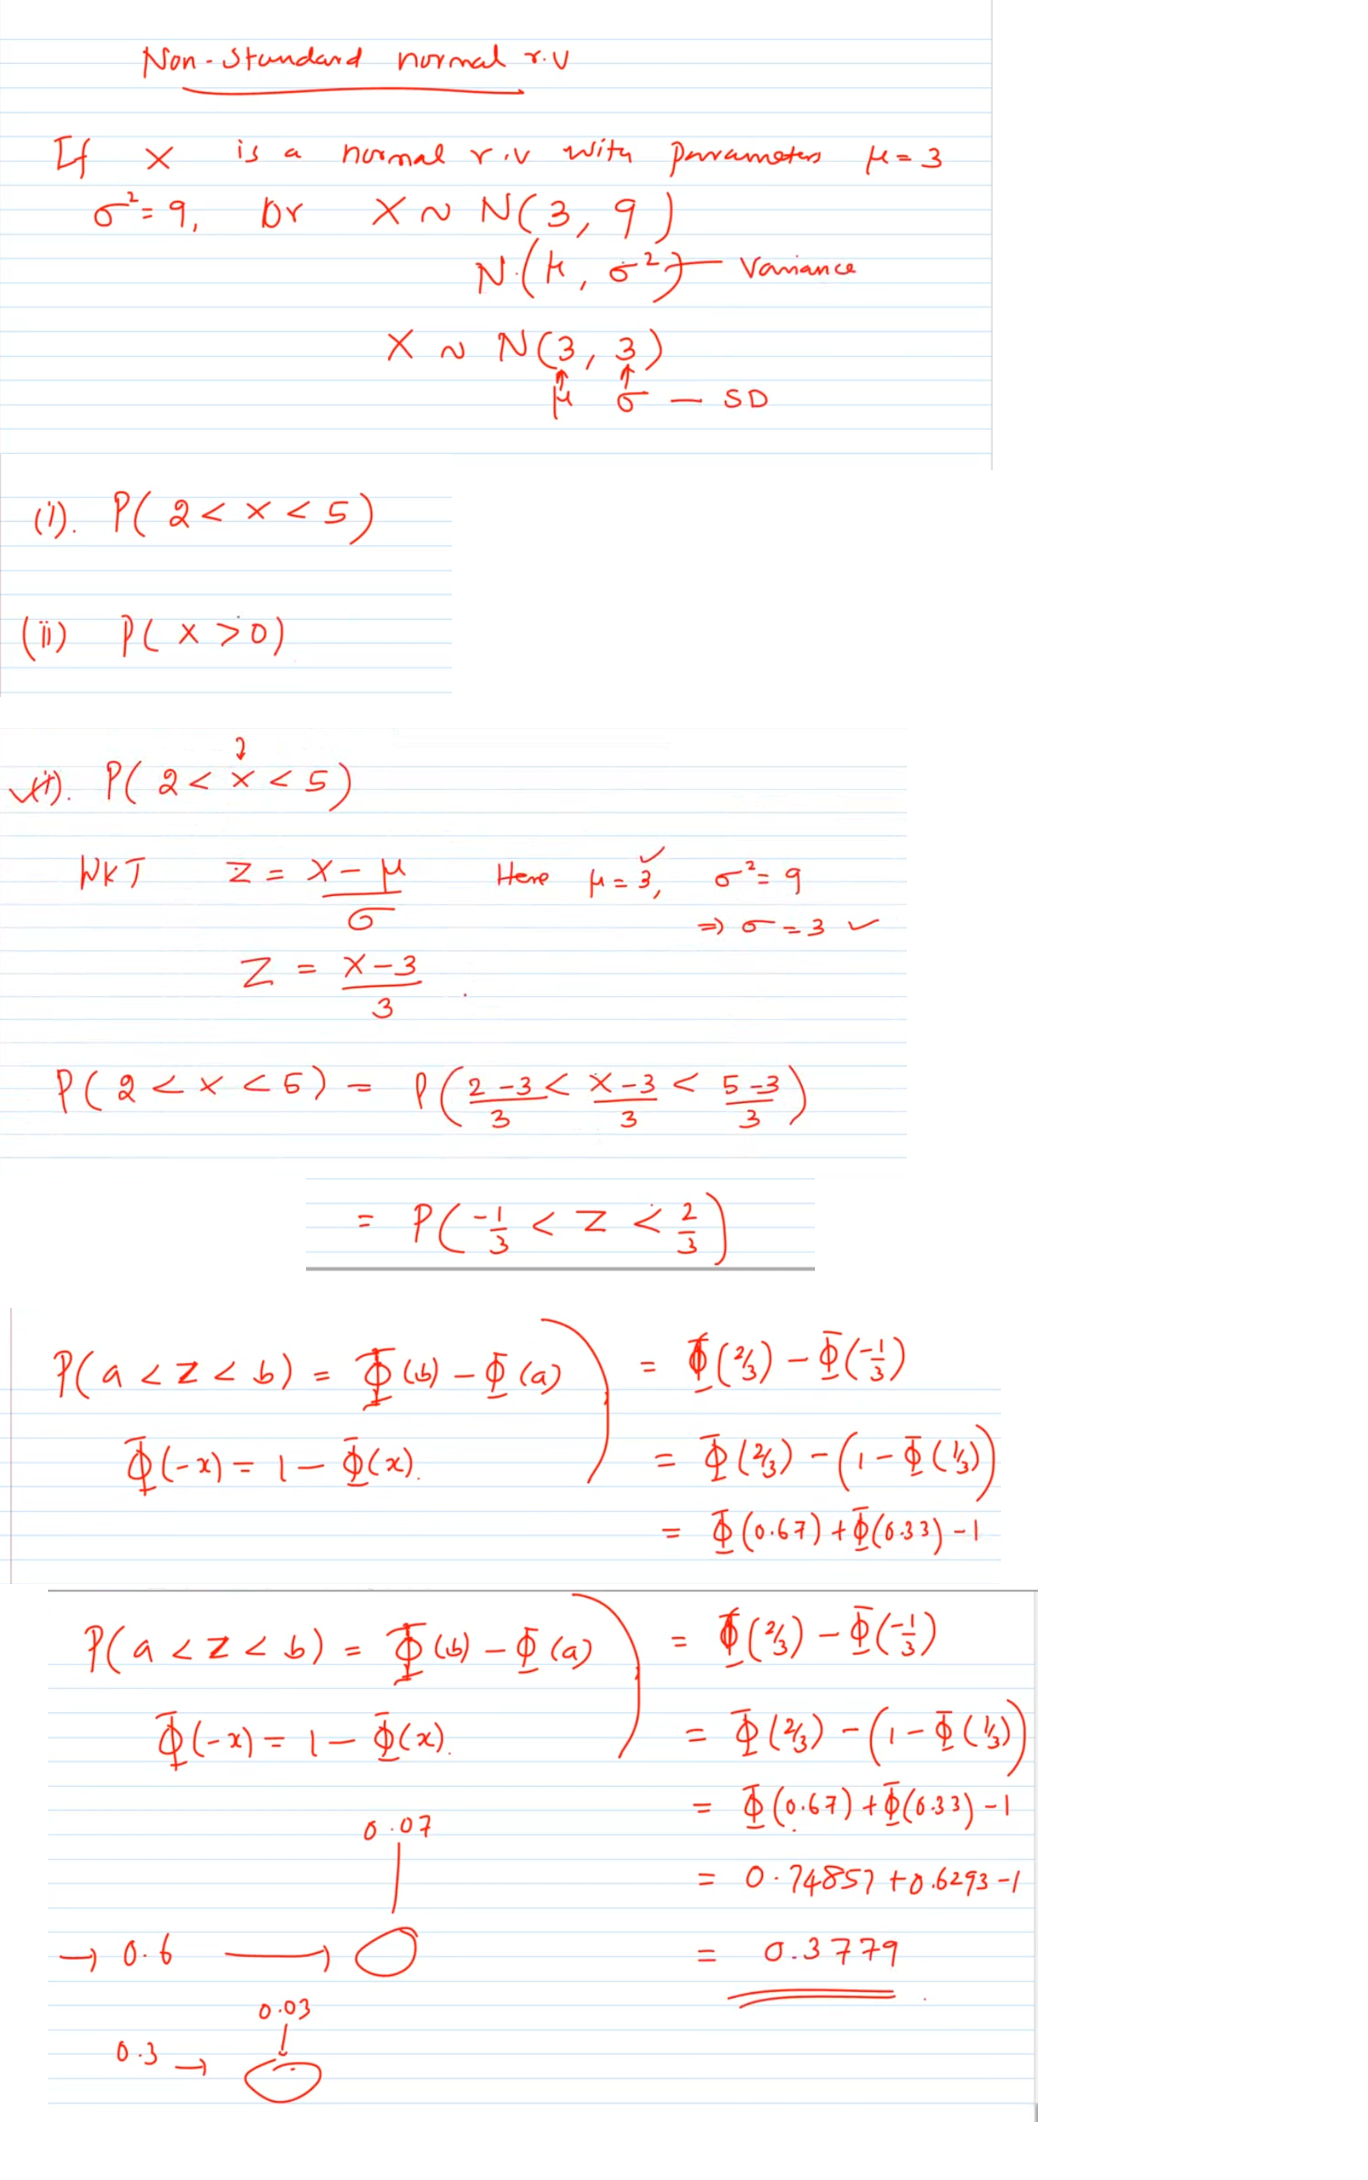 Non-Standard normal r.v
If X is a normal r.v with parameters μ = 3
σ² = 9, Or X ~ N(3, 9)
N(μ, σ²) — Variance
X ~ N(3, 3)
↑ ↑
μ σ — SD
(i). P( 2 < x < 5)
(ii) P( x > 0)
(i). P( 2 < x < 5)
WKT Z = (X - μ)/σ Here μ = 3, ✓ σ² = 9
⇒ σ = 3 ✓
Z = (X - 3)/3
P( 2 < x < 5) = P( (2-3)/3 < (X-3)/3 < (5-3)/3 )
= P( -1/3 < Z < 2/3 )
P( a < Z < b) = Φ(b) - Φ(a) = Φ(2/3) - Φ(-1/3)
Φ(-x) = 1 - Φ(x). = Φ(2/3) - (1 - Φ(1/3))
= Φ(0.67) + Φ(0.33) - 1
P( a < Z < b) = Φ(b) - Φ(a) = Φ(2/3) - Φ(-1/3)
Φ(-x) = 1 - Φ(x). = Φ(2/3) - (1 - Φ(1/3))
= Φ(0.67) + Φ(0.33) - 1
0.07
= 0.74857 + 0.6293 - 1
→ 0.6 →
= 0.3779
0.03
0.3 →